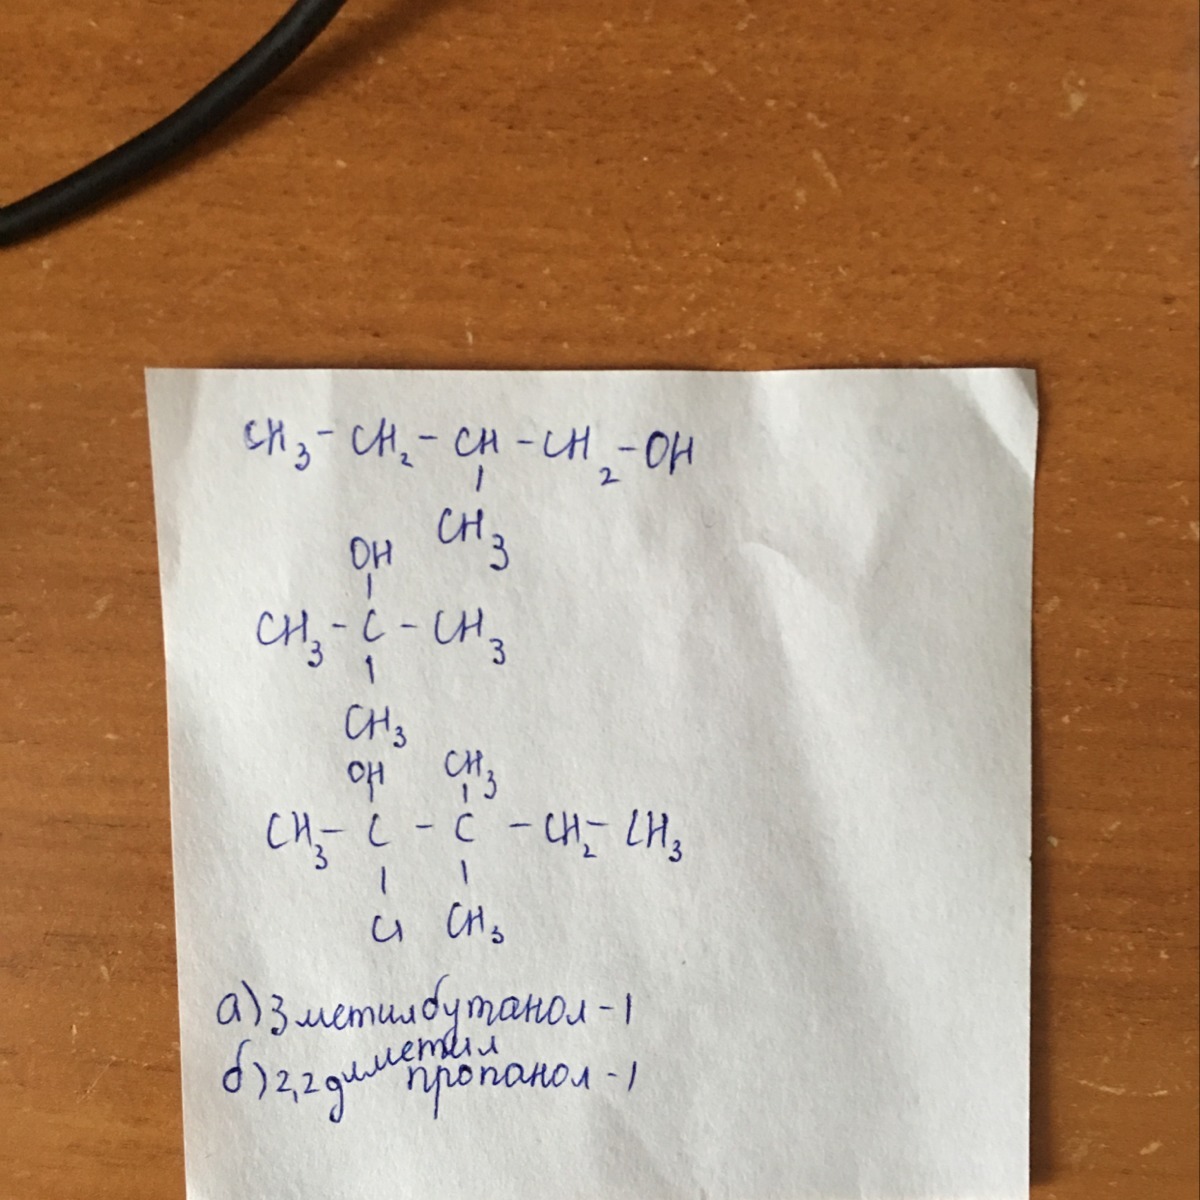 CH₃ - CH₂ - CH - CH₂ - OH
CH₃
OH
CH₃ - C - CH₃
CH₃
OH CH₃
CH₃ - C - C - CH₂ - CH₃
Cl CH₃
а) 3 метилбутанол - 1
б) 2,2 диметил пропанол - 1